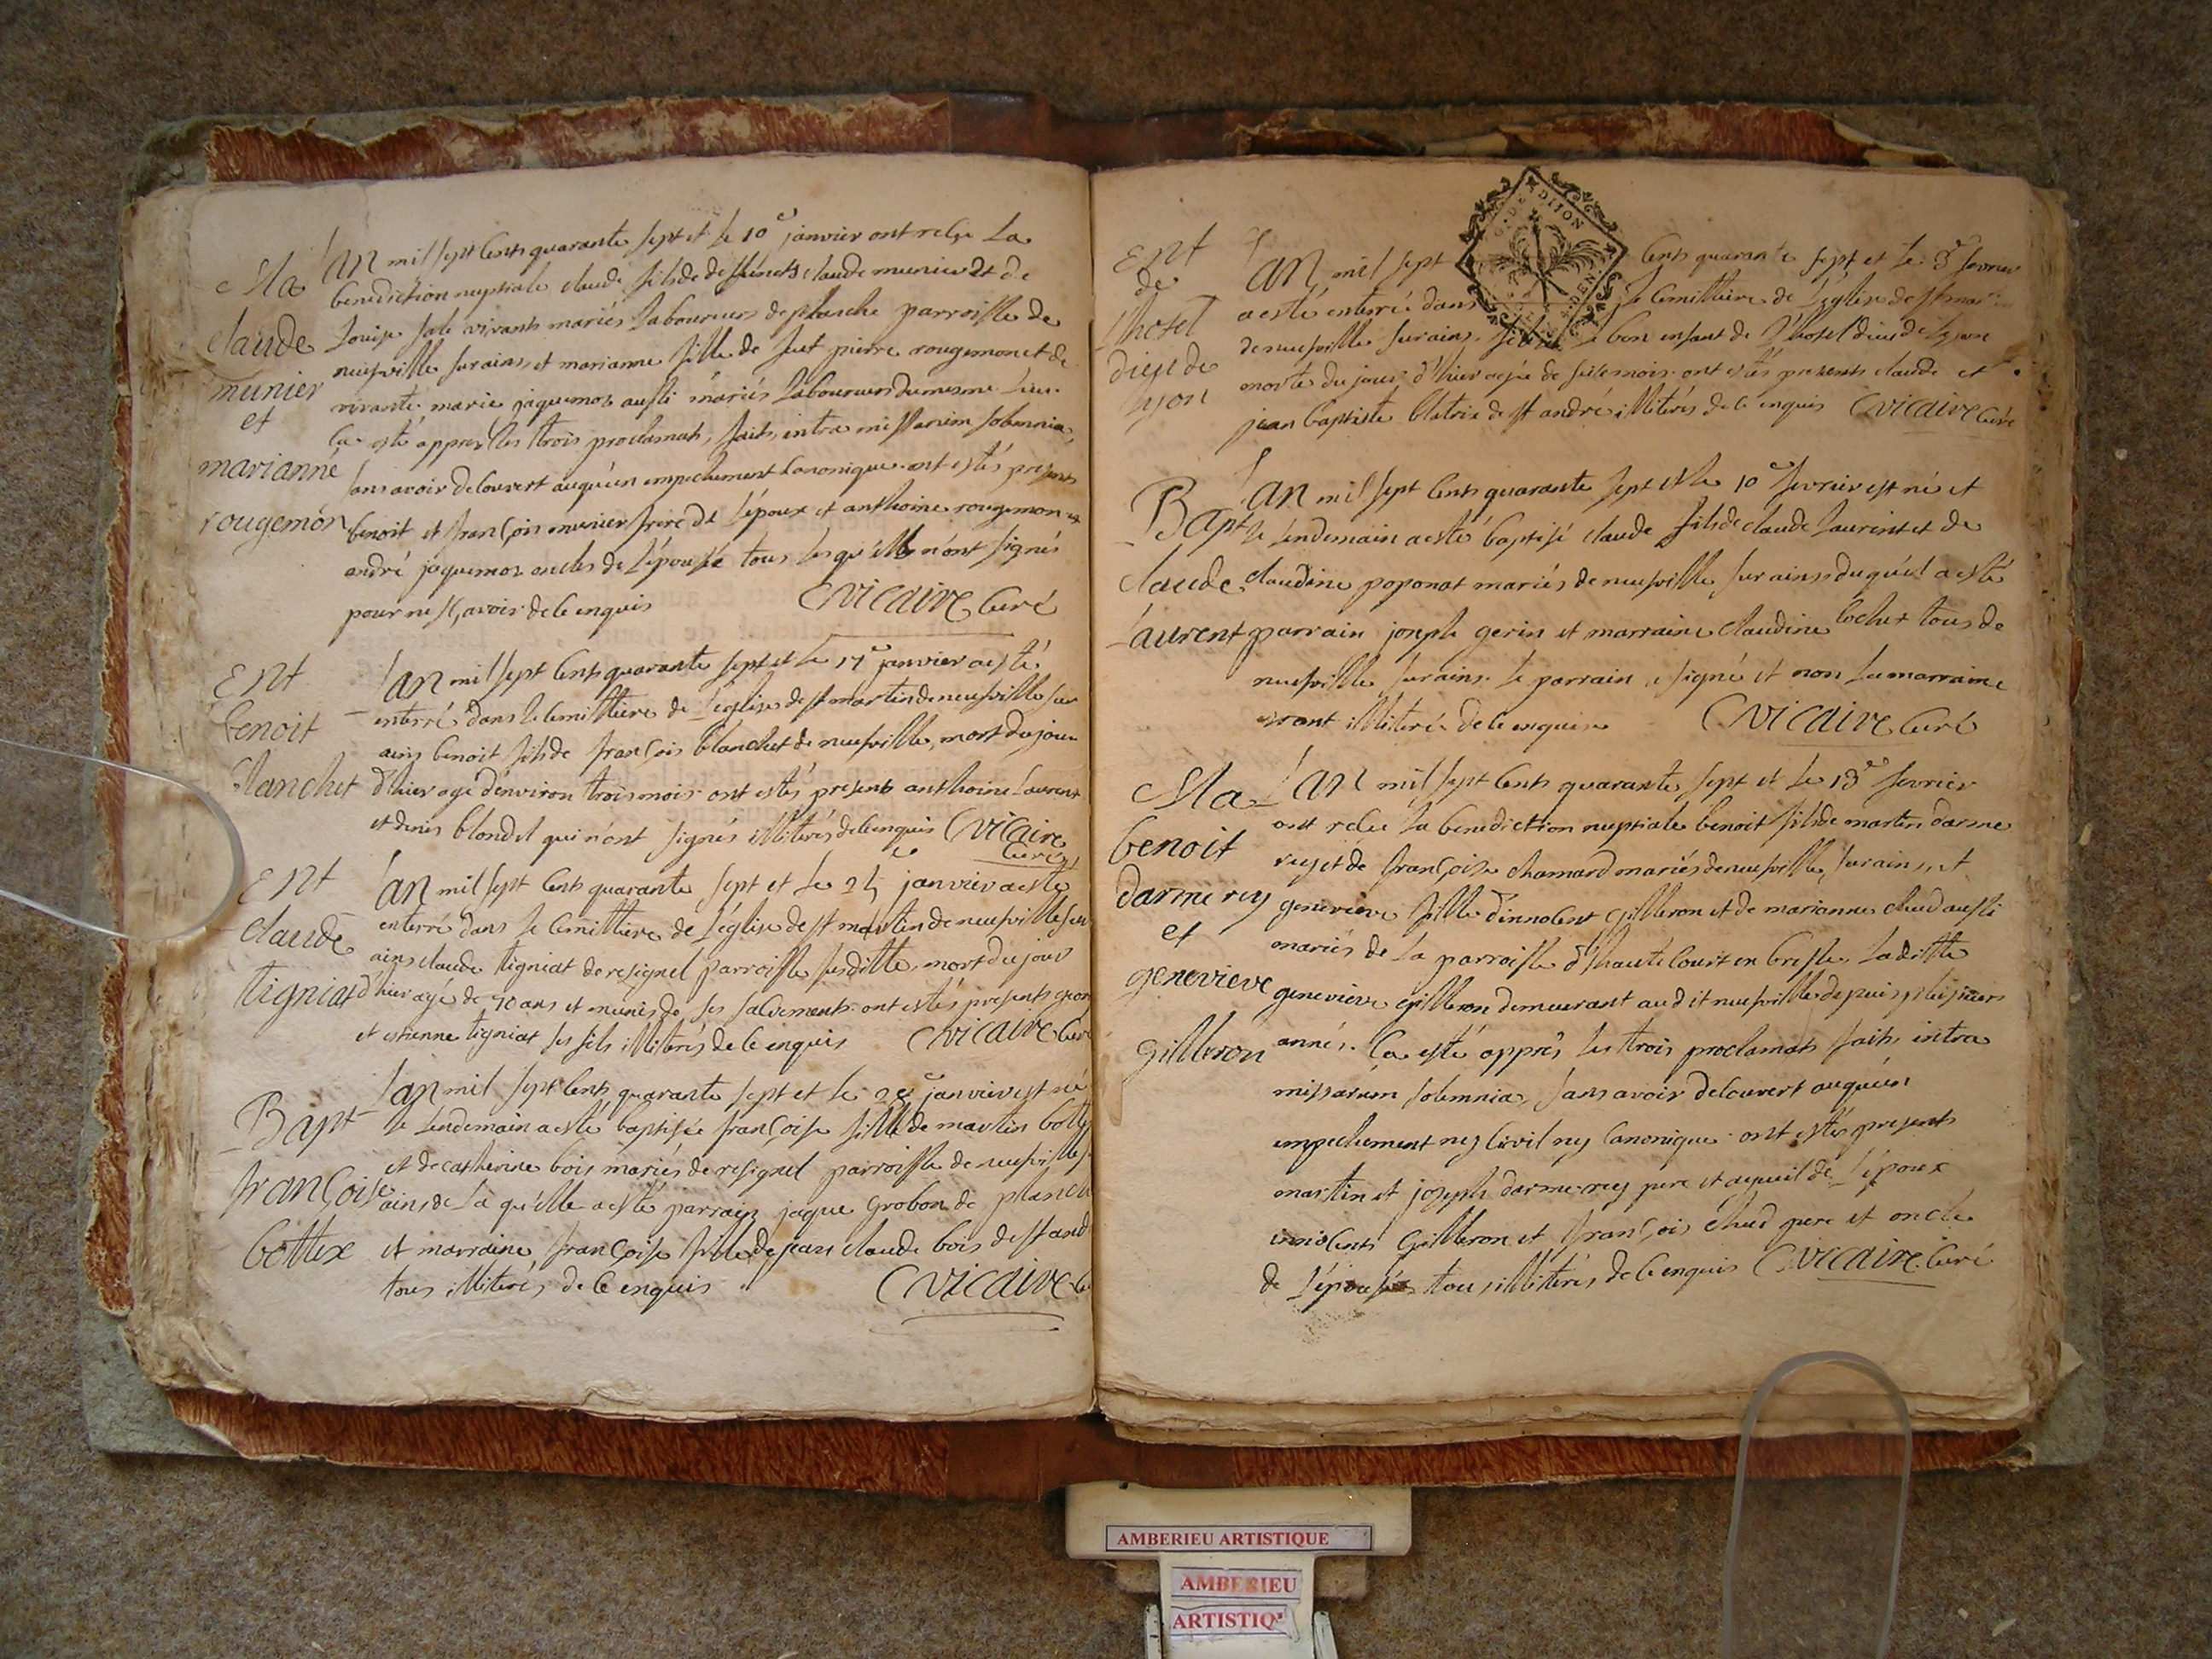 Ma
claude
munier
et
marianne
rougemon
L'an mil sept cents quarante sept et le 10e janvier ont reçu La
benediction nuptiale claude fils de deffuncts claude munier et de
Louise vivants mariés Laboureurs de planche parroisse de
neufville sur ains, et marianne fille de feut pierre rougemon et de
vivante marie jaquemoz aussi mariés Laboureurs du mesme Lieu
Ça esté appres Les trois proclamats, faits, intra missarum solemnia,
sans avoir decouvert auqu'un empechement canonique ont estés presents
benoit et françois munier frere de L'époux et anthoine rougemon et
andré jaquemoz oncles de L'épousée tous Les qu'els n'ont signés
pour ne sçavoir de ce enquis Cvicaire Curé
Ent
benoit
blanchet
L'an mil sept cents quarante sept et Le 17e janvier a esté
enterré dans Le cemittiere de L'eglise de st martin de neufville sur
ains benoit fils de françois blanchet de neufville, mort du jour
d'hier agé d'environ trois mois ont estés presents anthoine Laurent
et denis blondel qui n'ont signés illiterés de ce enquis Cvicaire
Curé
Ent
claude
tigniat
L'an mil sept cents quarante sept et Le janvier a esté
enterré dans Le cemittiere de L'église de st martin de neufville sur
ains claude tigniat de resignel parroisse susditte, mort du jour
d'hier agé de 70 ans et munis de ses sacrements ont estés presents
et estienne tigniat ses fils illiterés de ce enquis Cvicaire Cur
Bapt
françoise
bottex
L'an mil sept cents quarante sept et Le 28e janvier est né
Le Lendemain a esté baptisée françoise fille de martin bott
et de catherine bois mariés de resignel parroisse de neufville
ains de La qu'elle a esté parrain jaque grobon de planch
et marraine françoise fille de jean claude bois de st and
tous illiterés de ce enquis Cvicaire Cu
Ent
de
L'hotel
dieu de
Lyon
G. DE DIJON
L'an mil sept cents quarante sept et Le 3e fevrier
a esté enterré dans Le cemittiere de L'église de st mar
de neufville sur ains bon enfant de L'hotel dieu de Lyon
morte du jour d'hier agée de six mois ont estés presents claude et
jean baptiste blatrix de st andré illiterés de ce enquis Cvicaire Curé
Bapt
claude
Laurent
L'an mil sept cents quarante sept et le 10e fevrier est né et
Le Lendemain a esté baptisé claude fils de claude Laurent et de
claudine poponat mariés de neufville sur ains duqu'el a esté
parrain joseph gerin et marraine claudine bochet tous de
neufville sur ains. Le parrain signé et non La marraine
etant illiterée de ce enquise Cvicaire Curé
Ma
benoit
darme rey
et
genevieve
gilleron
L'an mil sept cents quarante sept et Le 13e fevrier
ont reçu La benediction nuptiale benoit fils de martin darme
rey et de françoise chamard mariés de neufville sur ains, et
genevieve fille d'innocent gilleron et de marianne chud aussi
mariés de La parroisse d'haute court en bresse. La ditte
genevieve gilleron demeurant au dit neufville depuis plusieurs
annés. Ça esté appres Les trois proclamats faits, intra
missarum solemnia, sans avoir decouvert auqu'un
empechement ney civil ney canonique ont estés presents
martin et joseph darme rey pere et ayeuil de L'époux
innocents gilleron et françois chud pere et oncle
de L'épousée tous illiterés, de ce enquis Cvicaire Curé
AMBERIEU ARTISTIQUE
AMBERIEU
ARTISTIQ